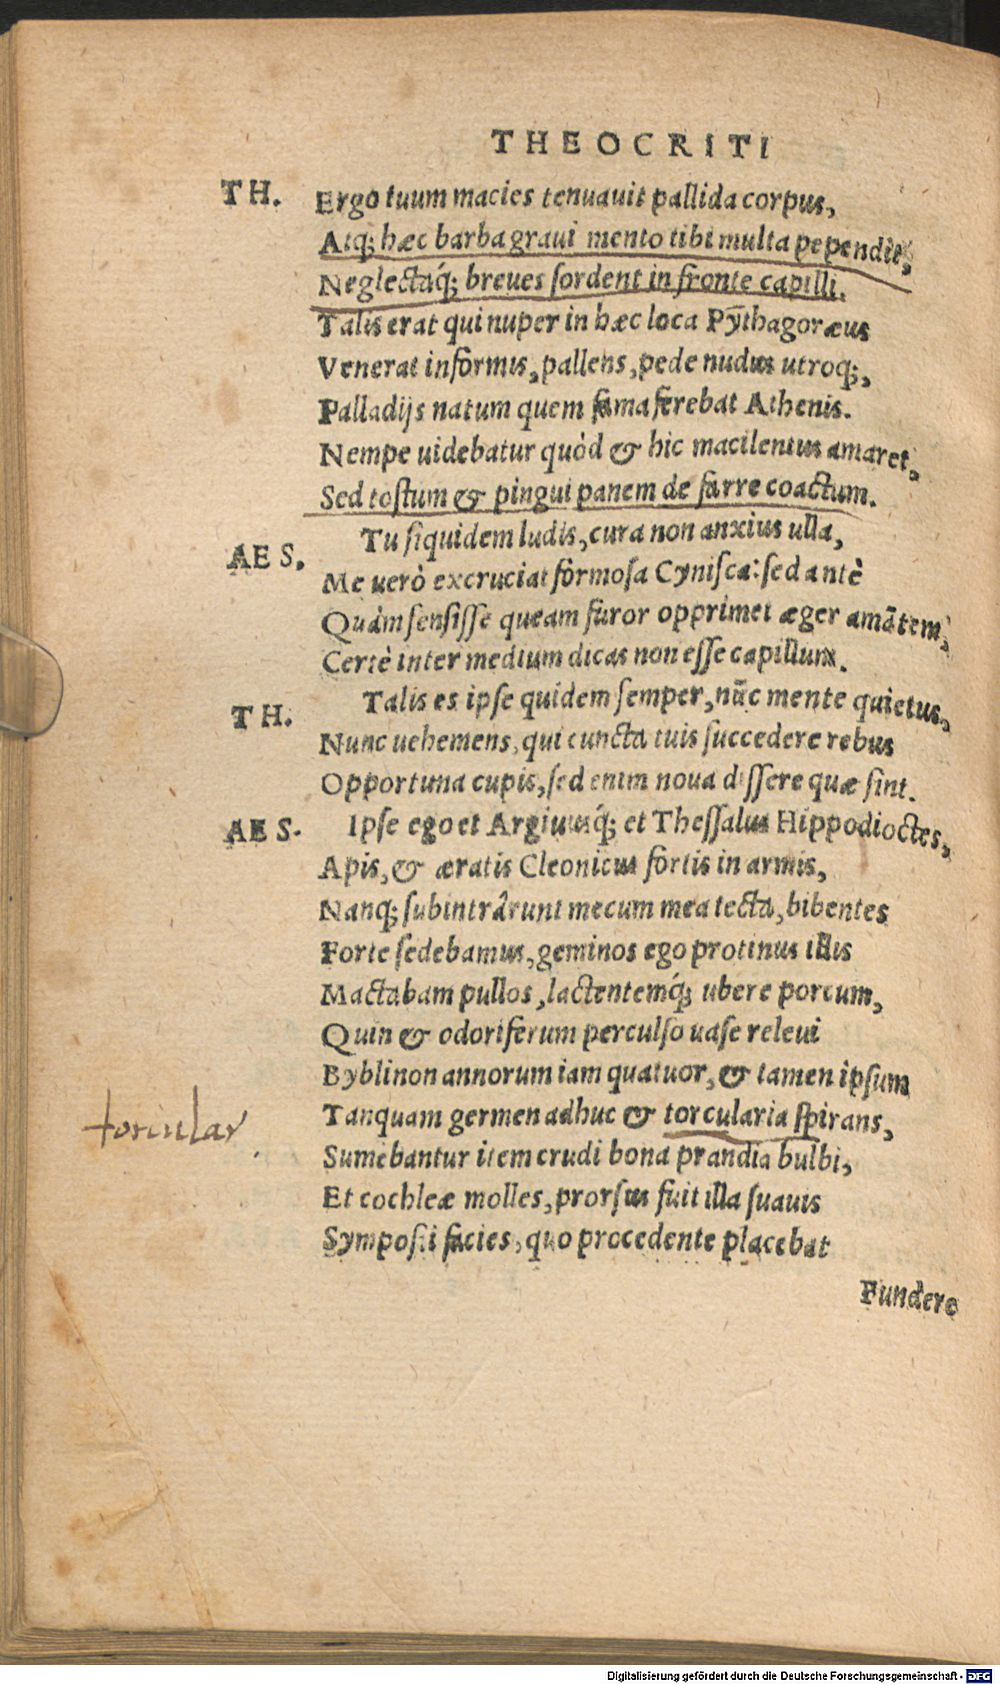 THEOCRITI
TH. Ergo tuum macies tenuauit pallida corpus,
Atq; hæc barba graui mento tibi multa pependit,
Neglectaq́; breues ſordent in fronte capilli.
Talis erat qui nuper in hæc loca Pȳthagoræus
Venerat informis, pallens, pede nudus utroq;,
Palladijs natum quem fama ferebat Athenis.
Nempe uidebatur quòd & hic macilentus amaret,
Sed toſtum & pingui panem de farre coactum.
AES. Tu ſiquidem ludis, cura non anxius ulla,
Me uerò excruciat formoſa Cyniſca: ſed antè
Quàm ſenſiſſe queam furor opprimet æger amãtem,
Certè inter medium dicas non eſſe capillum.
TH. Talis es ipſe quidem ſemper, nũc mente quietus,
Nunc uehemens, qui cuncta tuis ſuccedere rebus
Opportuna cupis, ſed enim noua diſſere quæ ſint.
AES. Ipſe ego et Argiuusq́; et Theſſalus Hippodioctes,
Apis, & æratis Cleonicus fortis in armis,
Nanq; ſubintrârunt mecum mea tecta, bibentes
Forte ſedebamus, geminos ego protinus illis
Mactabam pullos, lactentemq́; ubere porcum,
Quin & odoriferum perculſo uaſe releui
Byblinon annorum iam quatuor, & tamen ipſum
Tanquam germen adhuc & torcularia ſpirans,
torcular
Sumebantur item crudi bona prandia bulbi,
Et cochleæ molles, prorſus fuit illa ſuauis
Sympoſii facies, quo procedente placebat
Fundere
Digitalisierung gefördert durch die Deutsche Forschungsgemeinschaft - DFG